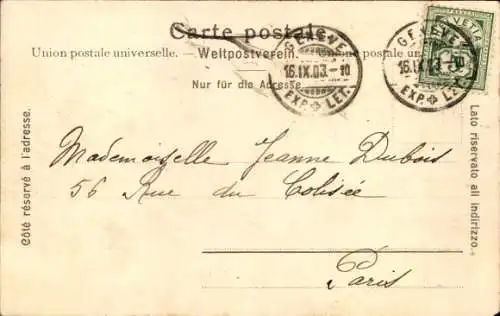 Carte postale.
Union postale universelle. — Weltpostverein. — Unione postale un
Nur für die Adresse.
GENÈVE
16.IX.03.-10
EXP. LET.
GENÈVE
16.IX.03.-10
EXP. LET.
HELVETIA
Côté réservé à l'adresse.
Lato riservato all indirizzo.
Mademoiselle Jeanne Dubois
56 Rue du Colisée
Paris